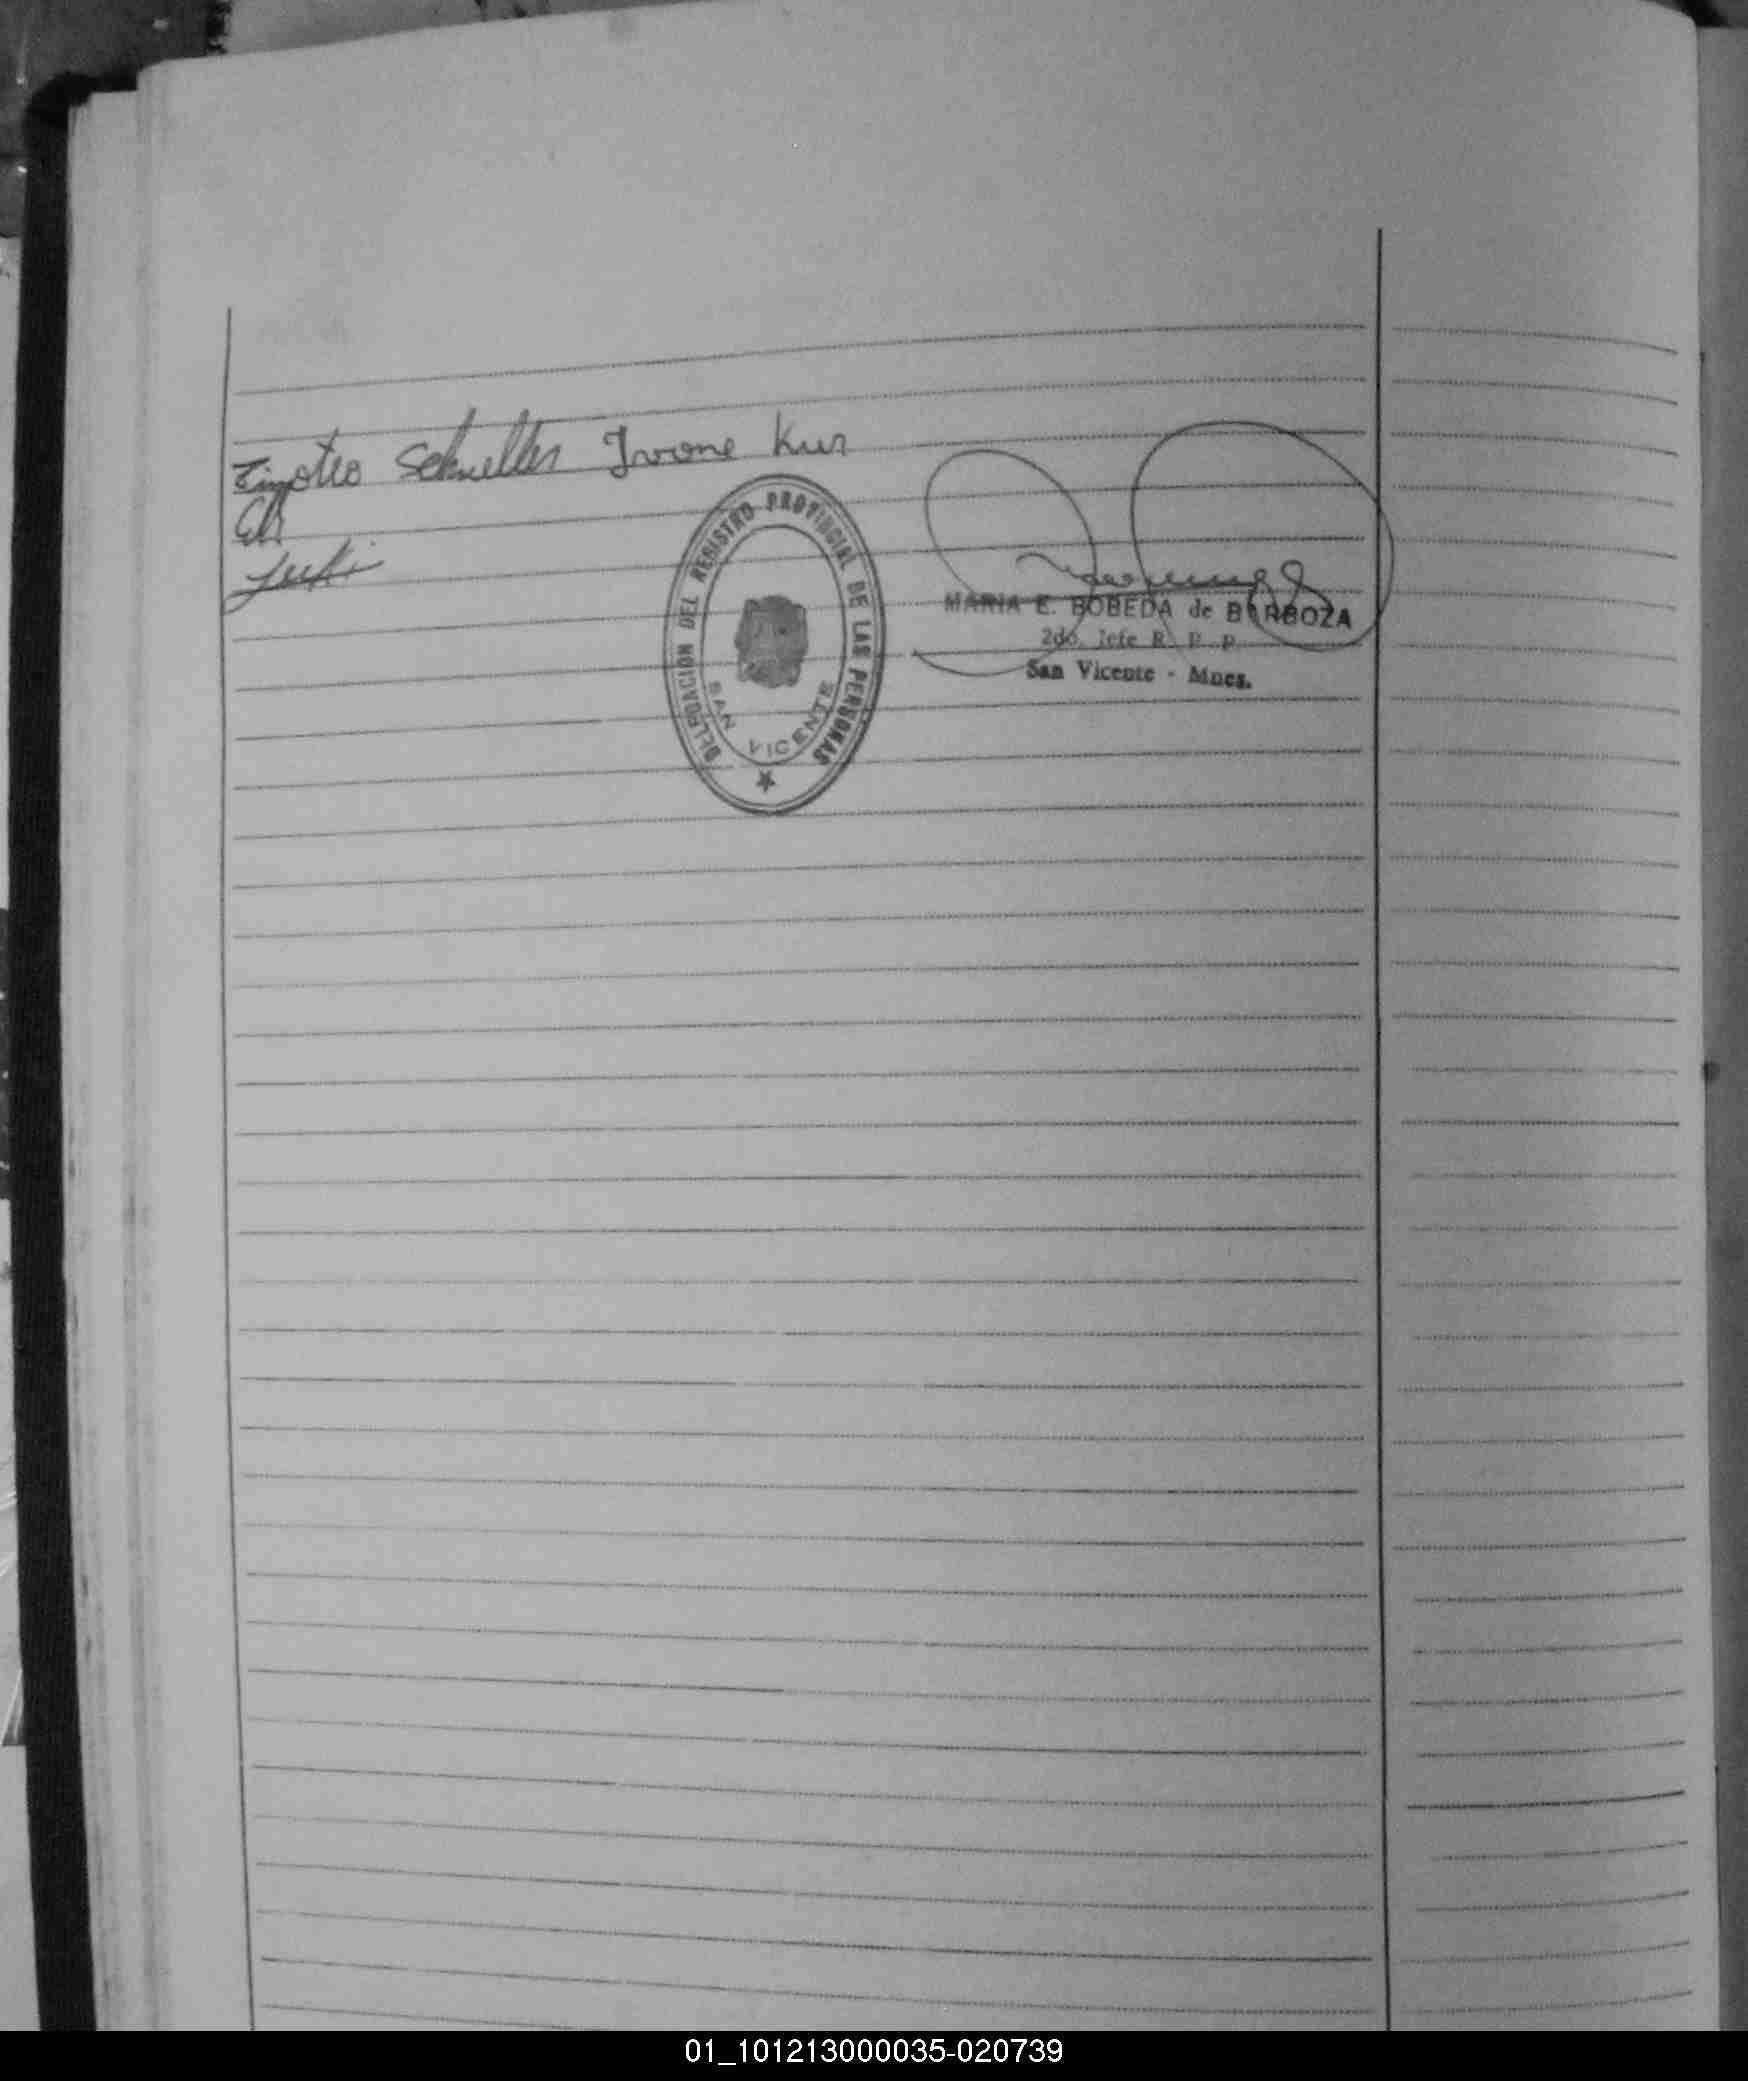 Timoteo Schneller Ivone Kur
DELEGACION DEL REGISTRO PROVINCIAL DE LAS PERSONAS
SAN VICENTE
MARIA E. BOBEDA de BARBOZA
2do. Jefe R. P. P.
San Vicente - Mnes.
01_101213000035-020739